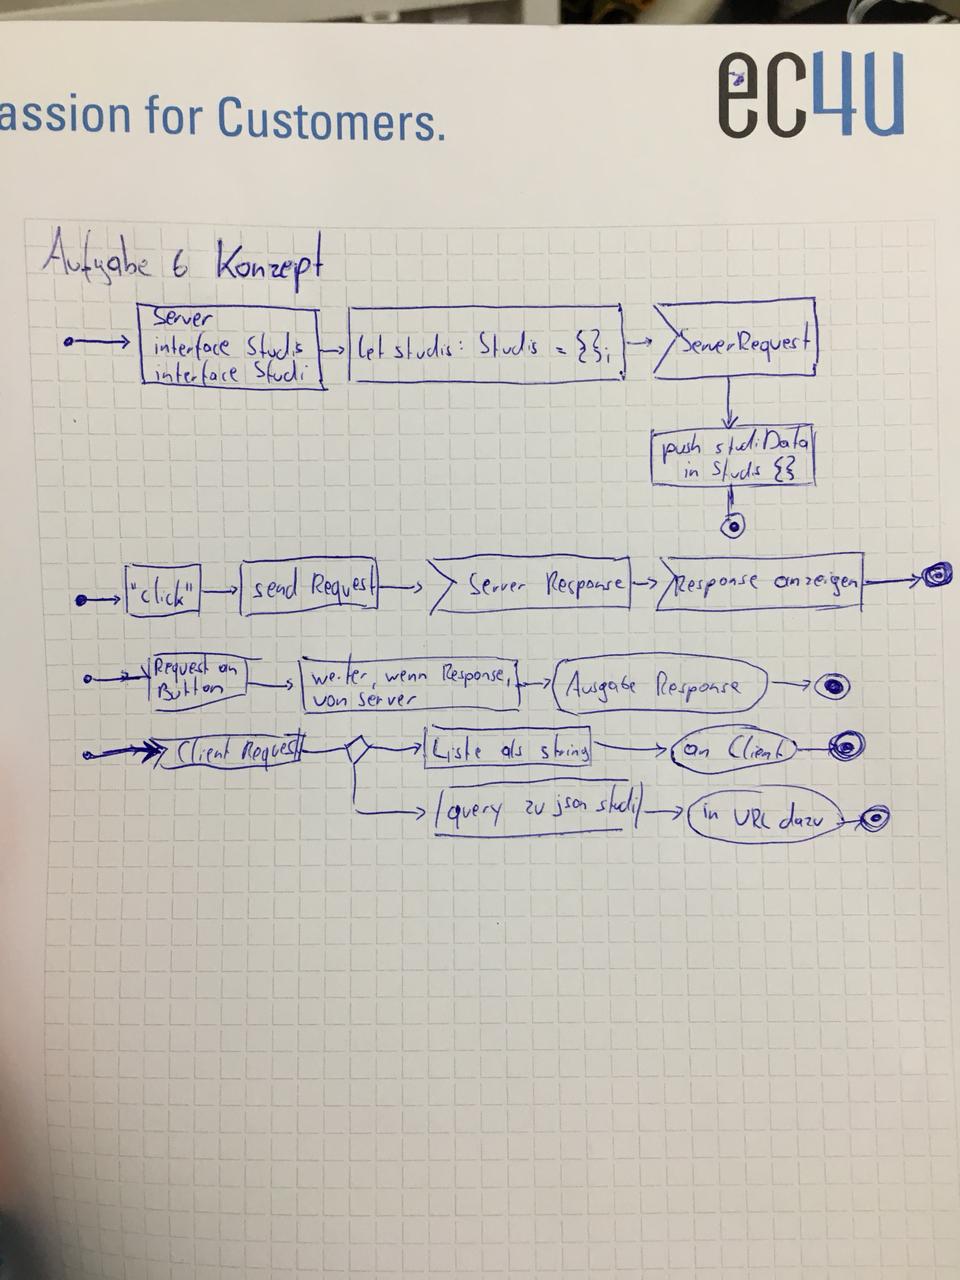 assion for Customers.
ec4u
Aufgabe 6 Konzept
Server
interface Studis
interface Studi
let studis: Studis = {};
ServerRequest
push studiData
in Studis {}
"click"
send Request
Server Response
Response anzeigen
Request an
Button
weiter, wenn Response,
von Server
Ausgabe Response
Client Request
Liste als string
an Client
query zu json studi
in URL dazu